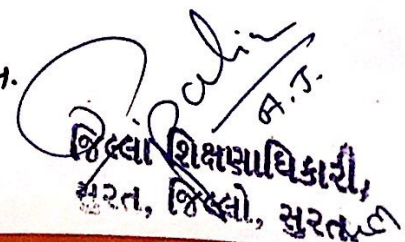 A.J.
જિલ્લા શિક્ષણાધિકારી,
સુરત, જિલ્લો, સુરત